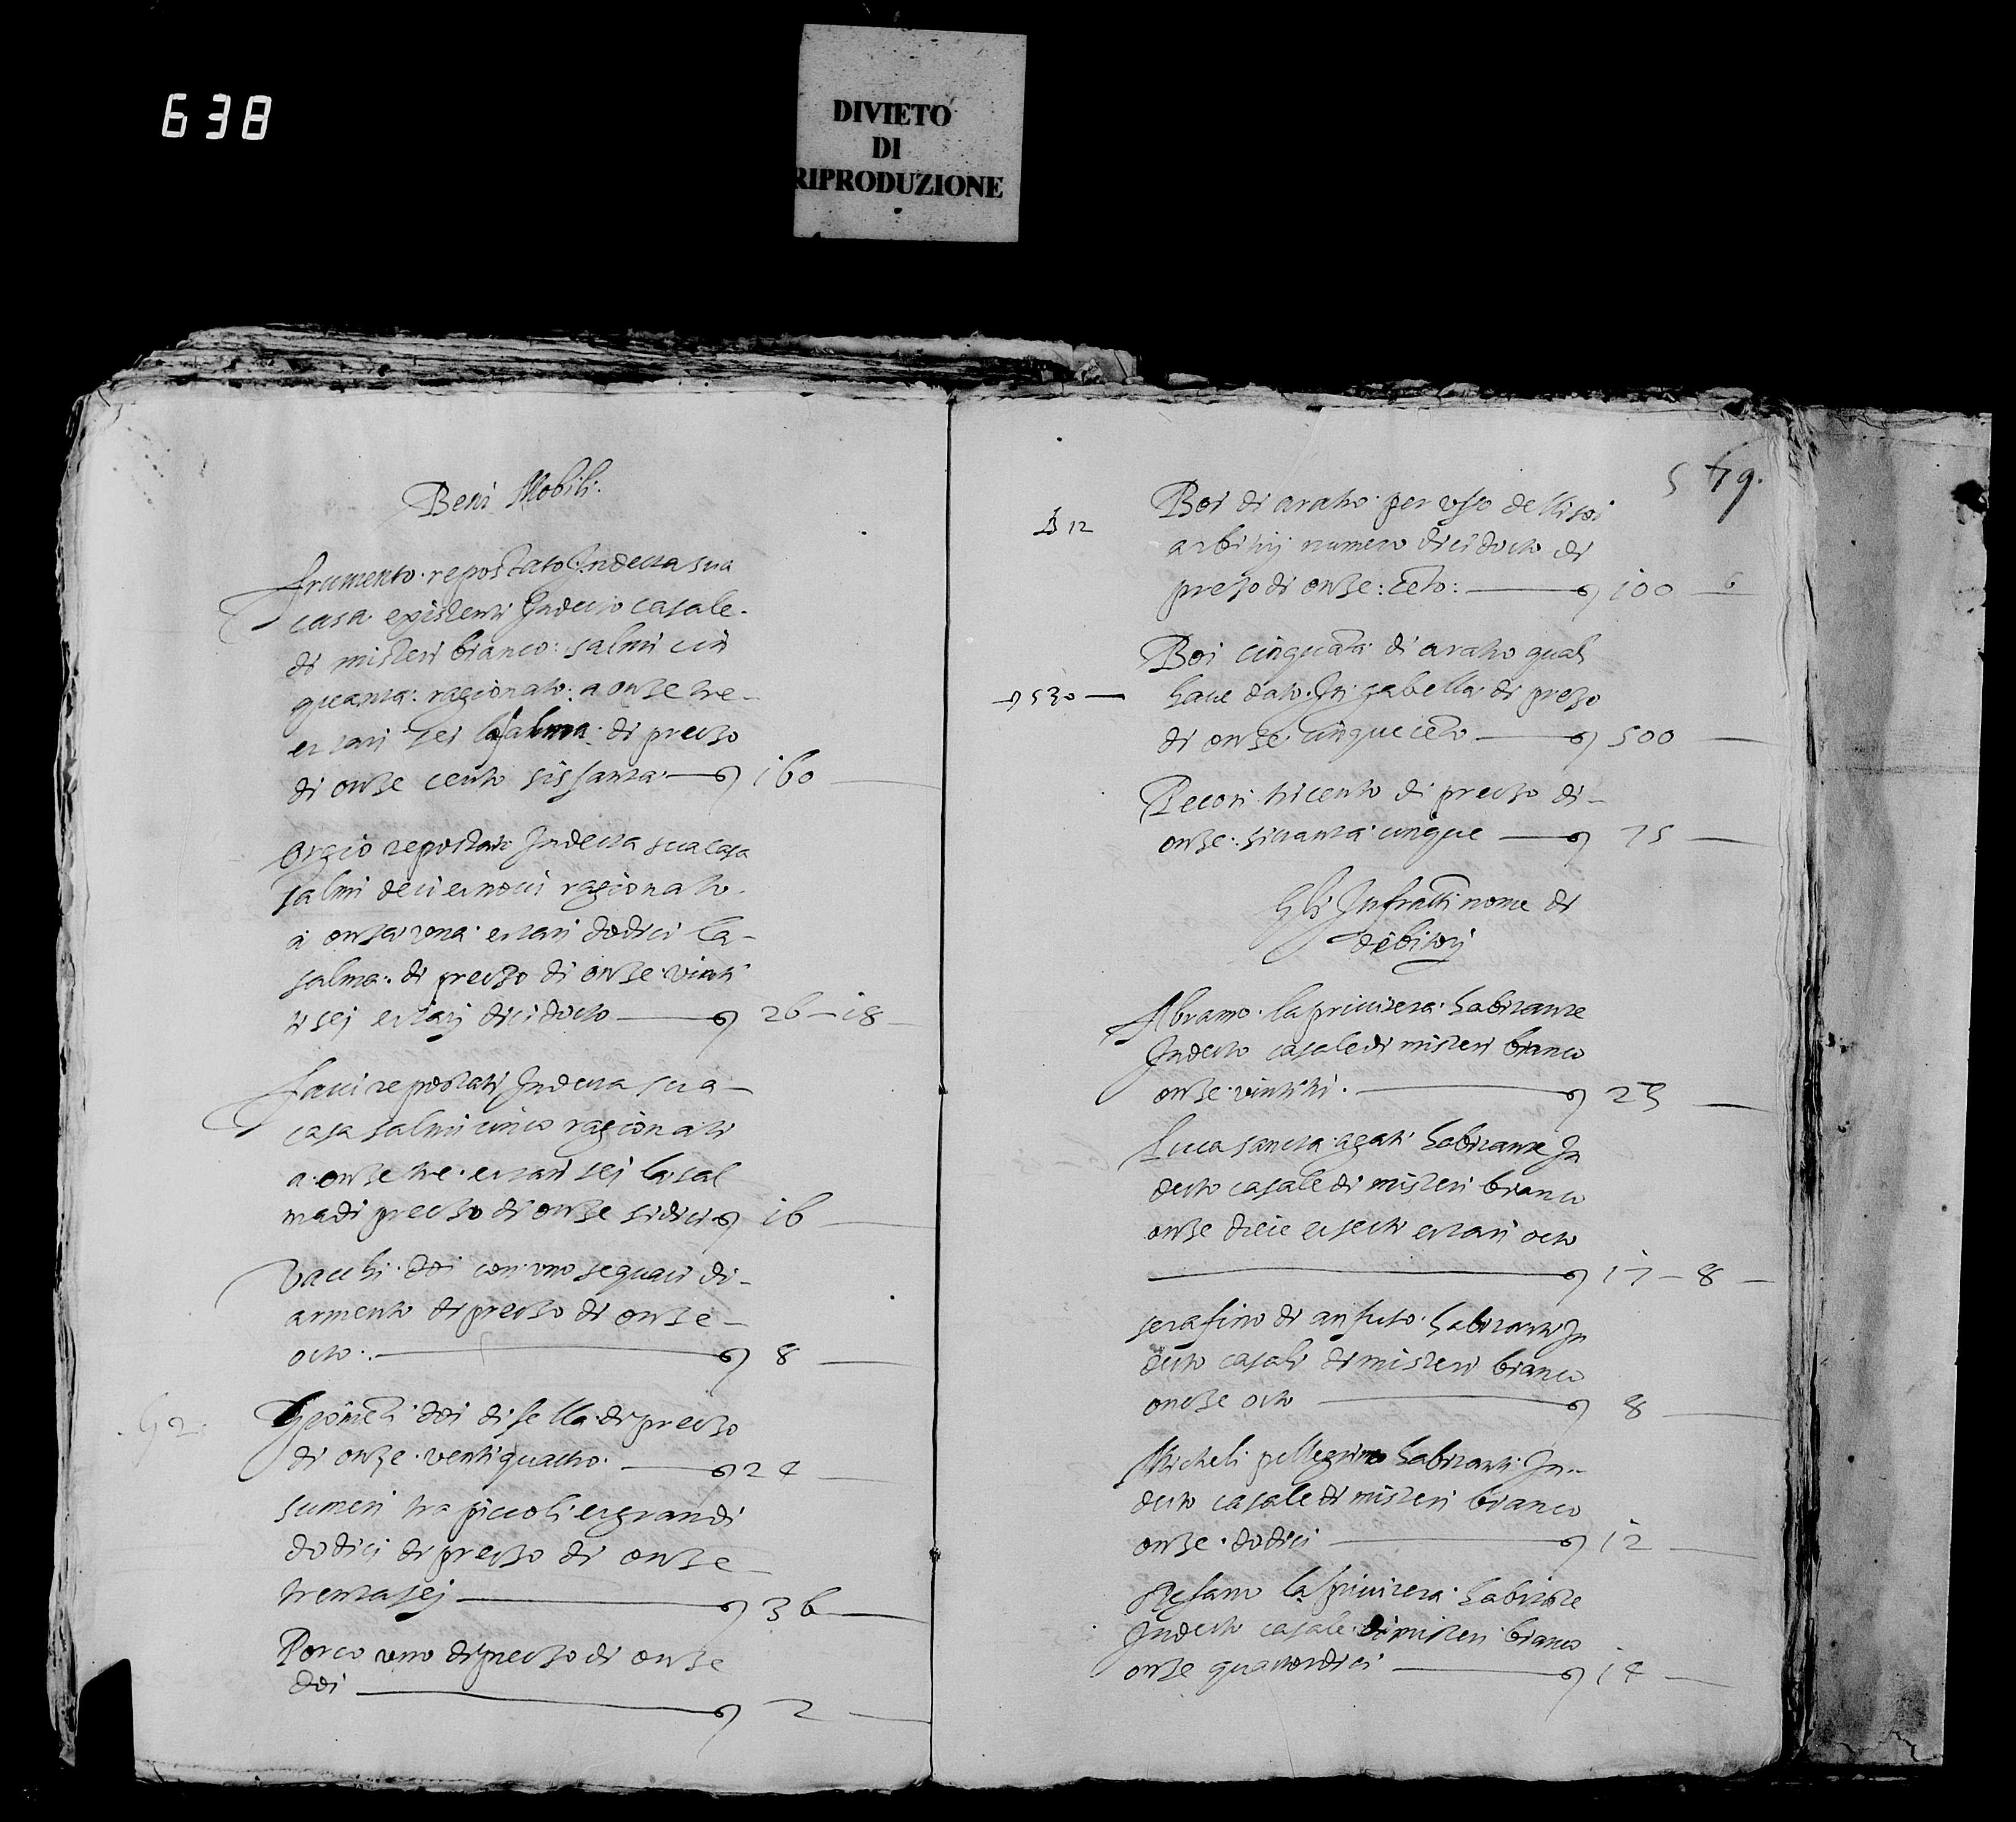 638
DIVIETO
DI
RIPRODUZIONE
Beni Mobili.
frumento repostato Indetta sua
casa existenti Indetto casale
di misteri bianco: salmi cin
quanta: ragionato: a onze tre
et tarì sei la salma di prezzo
di onze cento sissanta 160
Orgio repostato Indetta sua casa
salmi deci et novi ragionato
à onza vna et tarì dodici la
salma di prezzo di onze vinti
sej et tarj dicidocto 26 - 18
favi repostati Indetta sua
casa salmi cinco ragionati
a onze tre et tarì sej la sal
ma di prezzo di onze sidici 16
Vacchi doi con uno sequaci di
armento di prezzo di onze
octo: 8
92.
doi di sella di prezzo
di onze ventiquattro 24
sumeri tra piccoli et grandi
dodici di prezzo di onze
trentasej 36
Porco vno di prezzo di onze
doi 2
5 79.
12
Boi di aratro per vso delli soi
arbitrij numero dicidocto di
prezo di onze: cento: 100
Boi cinquanta di aratro quali
530
have dato In gabella di prezo
di onze cinquecento 500
Pecori tricento di prezzo di
onze: sittanta cinque 75
Gli Infratti nome di
debitorj
Abramo la privitera habitante
Indetto casale di misteri bianco
onze vintitri. 23
Luca sancta agati habitante In
detto casale di misteri bianco
onze diece et setti et tarì octo
17 - 8
serafino di ansuto habitanti In
detto casali di misteri bianco
onze octo 8
Micheli pellegrino habitanti In
detto casale di misteri bianco
onze dodici 12
stefano la privitera habitante
Indetto casale di misteri bianco
onze quattordici 14